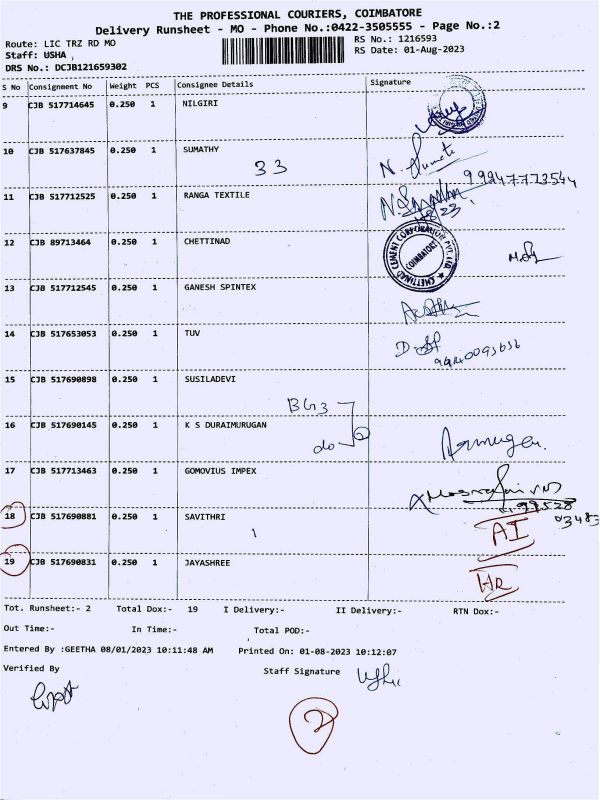 THE PROFESSIONAL COURIERS, COIMBATORE
Delivery Runsheet - MO - Phone No.:0422-3505555 - Page No.:2
Route: LIC TRZ RD MO
RS No.: 1216593
Staff: USHA ,
RS Date: 01-Aug-2023
DRS No.: DCJB121659302
S No Consignment No Weight PCS Consignee Details Signature
9 CJB 517714645 0.250 1 NILGIRI
10 CJB 517637845 0.250 1 SUMATHY
33
11 CJB 517712525 0.250 1 RANGA TEXTILE
12 CJB 89713464 0.250 1 CHETTINAD
CHETTINAD CEMENT CORPORATION PVT. LTD. COIMBATORE
13 CJB 517712545 0.250 1 GANESH SPINTEX
14 CJB 517653053 0.250 1 TUV
15 CJB 517690898 0.250 1 SUSILADEVI
BG3
16 CJB 517690145 0.250 1 K S DURAIMURUGAN
do
17 CJB 517713463 0.250 1 GOMOVIUS IMPEX
18 CJB 517690881 0.250 1 SAVITHRI
AI
19 CJB 517690831 0.250 1 JAYASHREE
HR
Tot. Runsheet:- 2 Total Dox:- 19 I Delivery:- II Delivery:- RTN Dox:-
Out Time:- In Time:- Total POD:-
Entered By :GEETHA 08/01/2023 10:11:48 AM Printed On: 01-08-2023 10:12:07
Verified By Staff Signature
2